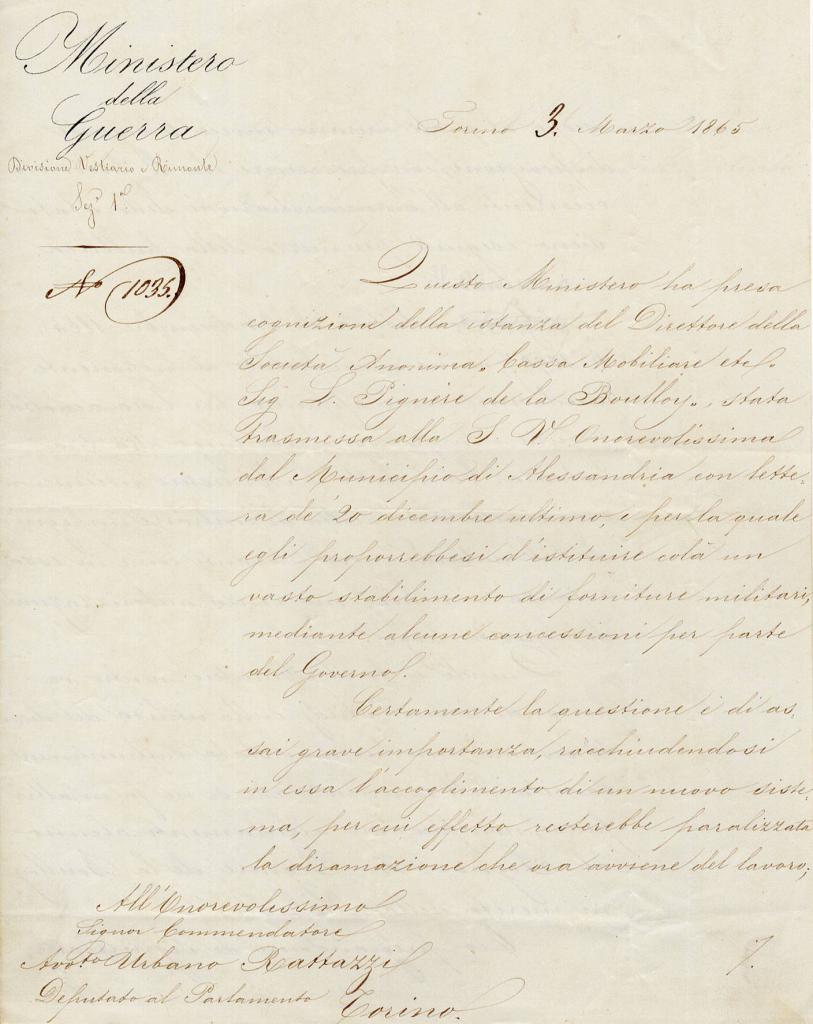 Ministero
della
Guerra
Divisione Vestiario e Rimonte
Sez. 1ª
N° 1035.
Torino 3. Marzo 1865
Questo Ministero ha presa
cognizione della istanza del Direttore della
Società Anonima „Cassa Mobiliare etc„
Sig L. Pignére de la Boulloy„, stata
trasmessa alla S. V. Onorevolissima
dal Municipio di Alessandria con lette-
ra de' 20 dicembre ultimo, e per la quale
egli proporrebbesi d'istituire colà un
vasto stabilimento di forniture militari,
mediante alcune concessioni per parte
del Governo.
Certamente la questione è di as-
sai grave importanza, racchiudendosi
in essa l'accoglimento di un nuovo siste-
ma, per cui effetto resterebbe paralizzata
la diramazione che ora avviene del lavoro;
All'Onorevolissimo
Signor Commendatore
Avv.to Urbano Rattazzi
Deputato al Parlamento
Torino.